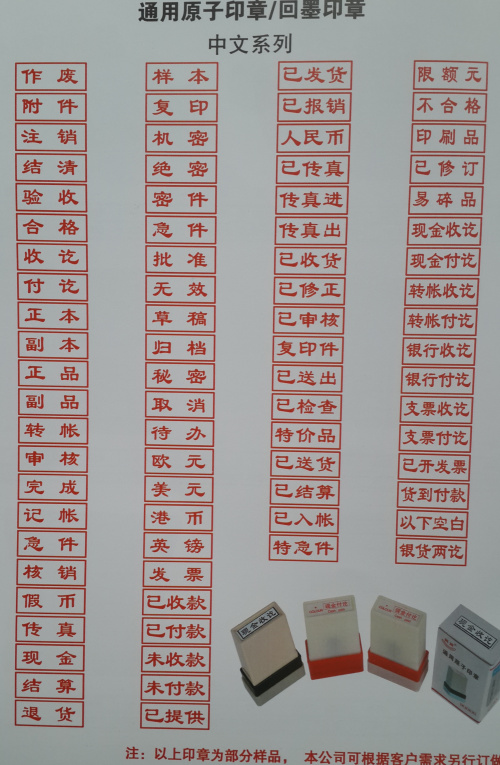 通用原子印章/回墨印章
中文系列
作废
附件
注销
结清
验收
合格
收讫
付讫
正本
副本
正品
副品
转帐
审核
完成
记帐
急件
核销
假币
传真
现金
结算
退货
样本
复印
机密
绝密
密件
急件
批准
无效
草稿
归档
秘密
取消
待办
欧元
美元
港币
英镑
发票
已收款
已付款
未收款
未付款
已提供
已发货
已报销
人民币
已传真
传真进
传真出
已收货
已修正
已审核
复印件
已送出
已检查
特价品
已送货
已结算
已入帐
特急件
限额元
不合格
印刷品
已修订
易碎品
现金收讫
现金付讫
转帐收讫
转帐付讫
银行收讫
银行付讫
支票收讫
支票付讫
已开发票
货到付款
以下空白
银货两讫
现金收讫
现金付讫
现金付讫
现金收讫
通用原子印章
注：以上印章为部分样品， 本公司可根据客户需求另行订做